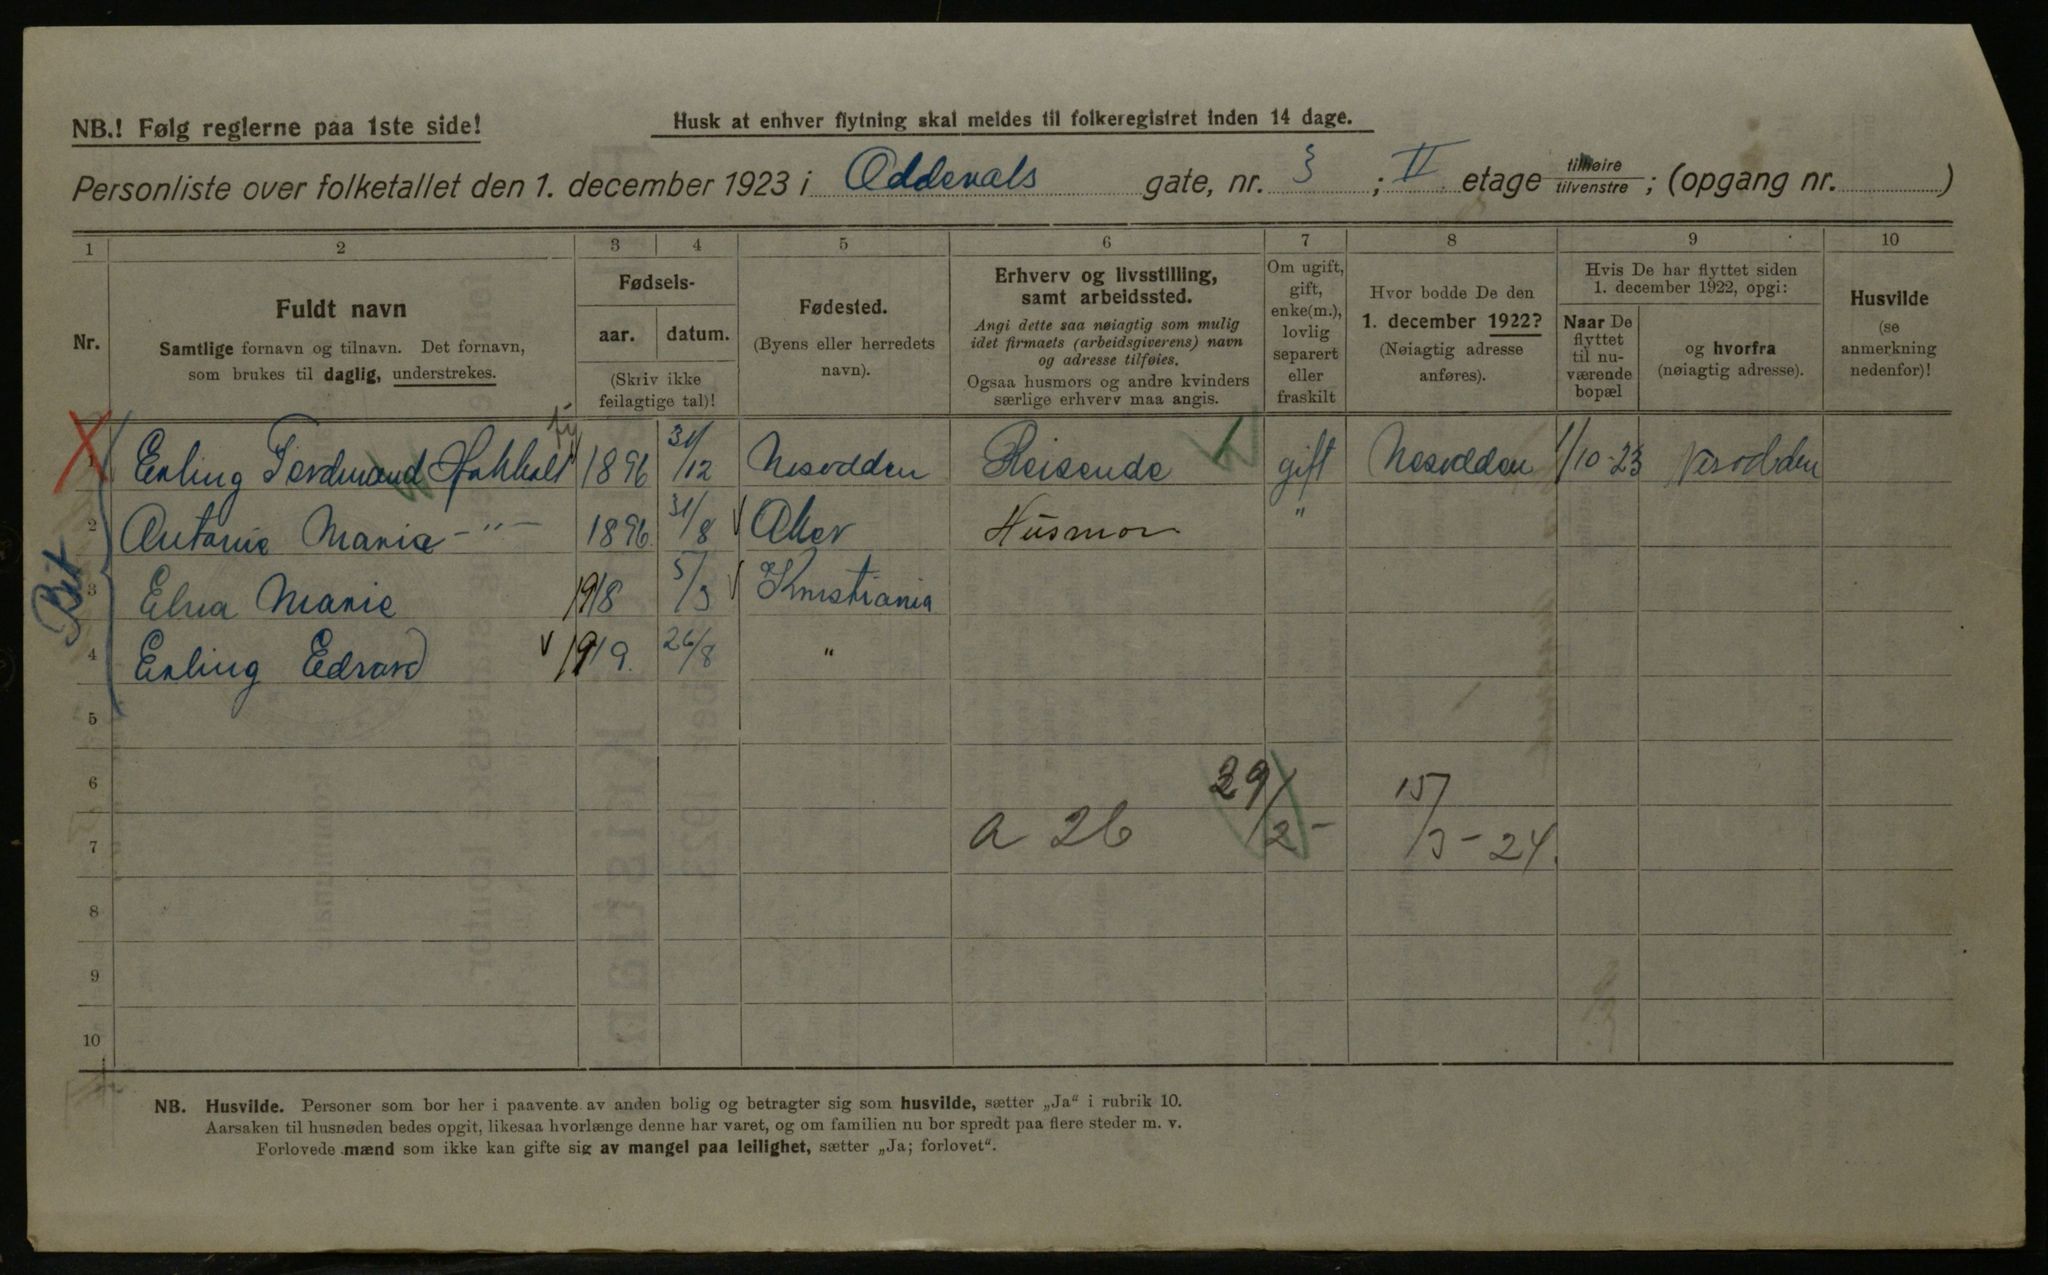 NB.! Følg reglerne paa 1ste side!
Husk at enhver flytning skal meldes til folkeregistret inden 14 dage.
Personliste over folketallet den 1. december 1923 i Oddevals gate, nr. 3 ; II etage tilhøire tilvenstre ; (opgang nr. )
1 2 3 4 5 6 7 8 9 10
Nr.
Fuldt navn
Samtlige fornavn og tilnavn. Det fornavn,
som brukes til daglig, understrekes.
Fødsels-
aar. datum.
(Skriv ikke
feilagtige tal)!
Fødested.
(Byens eller herredets
navn).
Erhverv og livsstilling,
samt arbeidssted.
Angi dette saa nøiagtig som mulig
idet firmaets (arbeidsgiverens) navn
og adresse tilføies.
Ogsaa husmors og andre kvinders
særlige erhverv maa angis.
Om ugift,
gift,
enke(m.),
lovlig
separert
eller
fraskilt
Hvor bodde De den
1. december 1922?
(Nøiagtig adresse
anføres).
Hvis De har flyttet siden
1. december 1922, opgi:
Naar De
flyttet
til nu-
værende
bopæl
og hvorfra
(nøiagtig adresse).
Husvilde
(se
anmerkning
nedenfor)!
1 Erling Ferdinand 1896 31/12 Nesodden Reisende gift Nesodden 1/10-23 Nesodden
2 Antonie Marie -"- 1896 31/8 Aker Husmor "
3 Elna Marie 1918 5/3 Kristiania
4 Erling Edvard 1919. 26/8 "
5
6
7 a 26 29/2- 15/3-24.
8
9
10
NB. Husvilde. Personer som bor her i paavente av anden bolig og betragter sig som husvilde, sætter „Ja“ i rubrik 10.
Aarsaken til husnøden bedes opgit, likesaa hvorlænge denne har varet, og om familien nu bor spredt paa flere steder m. v.
Forlovede mænd som ikke kan gifte sig av mangel paa leilighet, sætter „Ja; forlovet“.